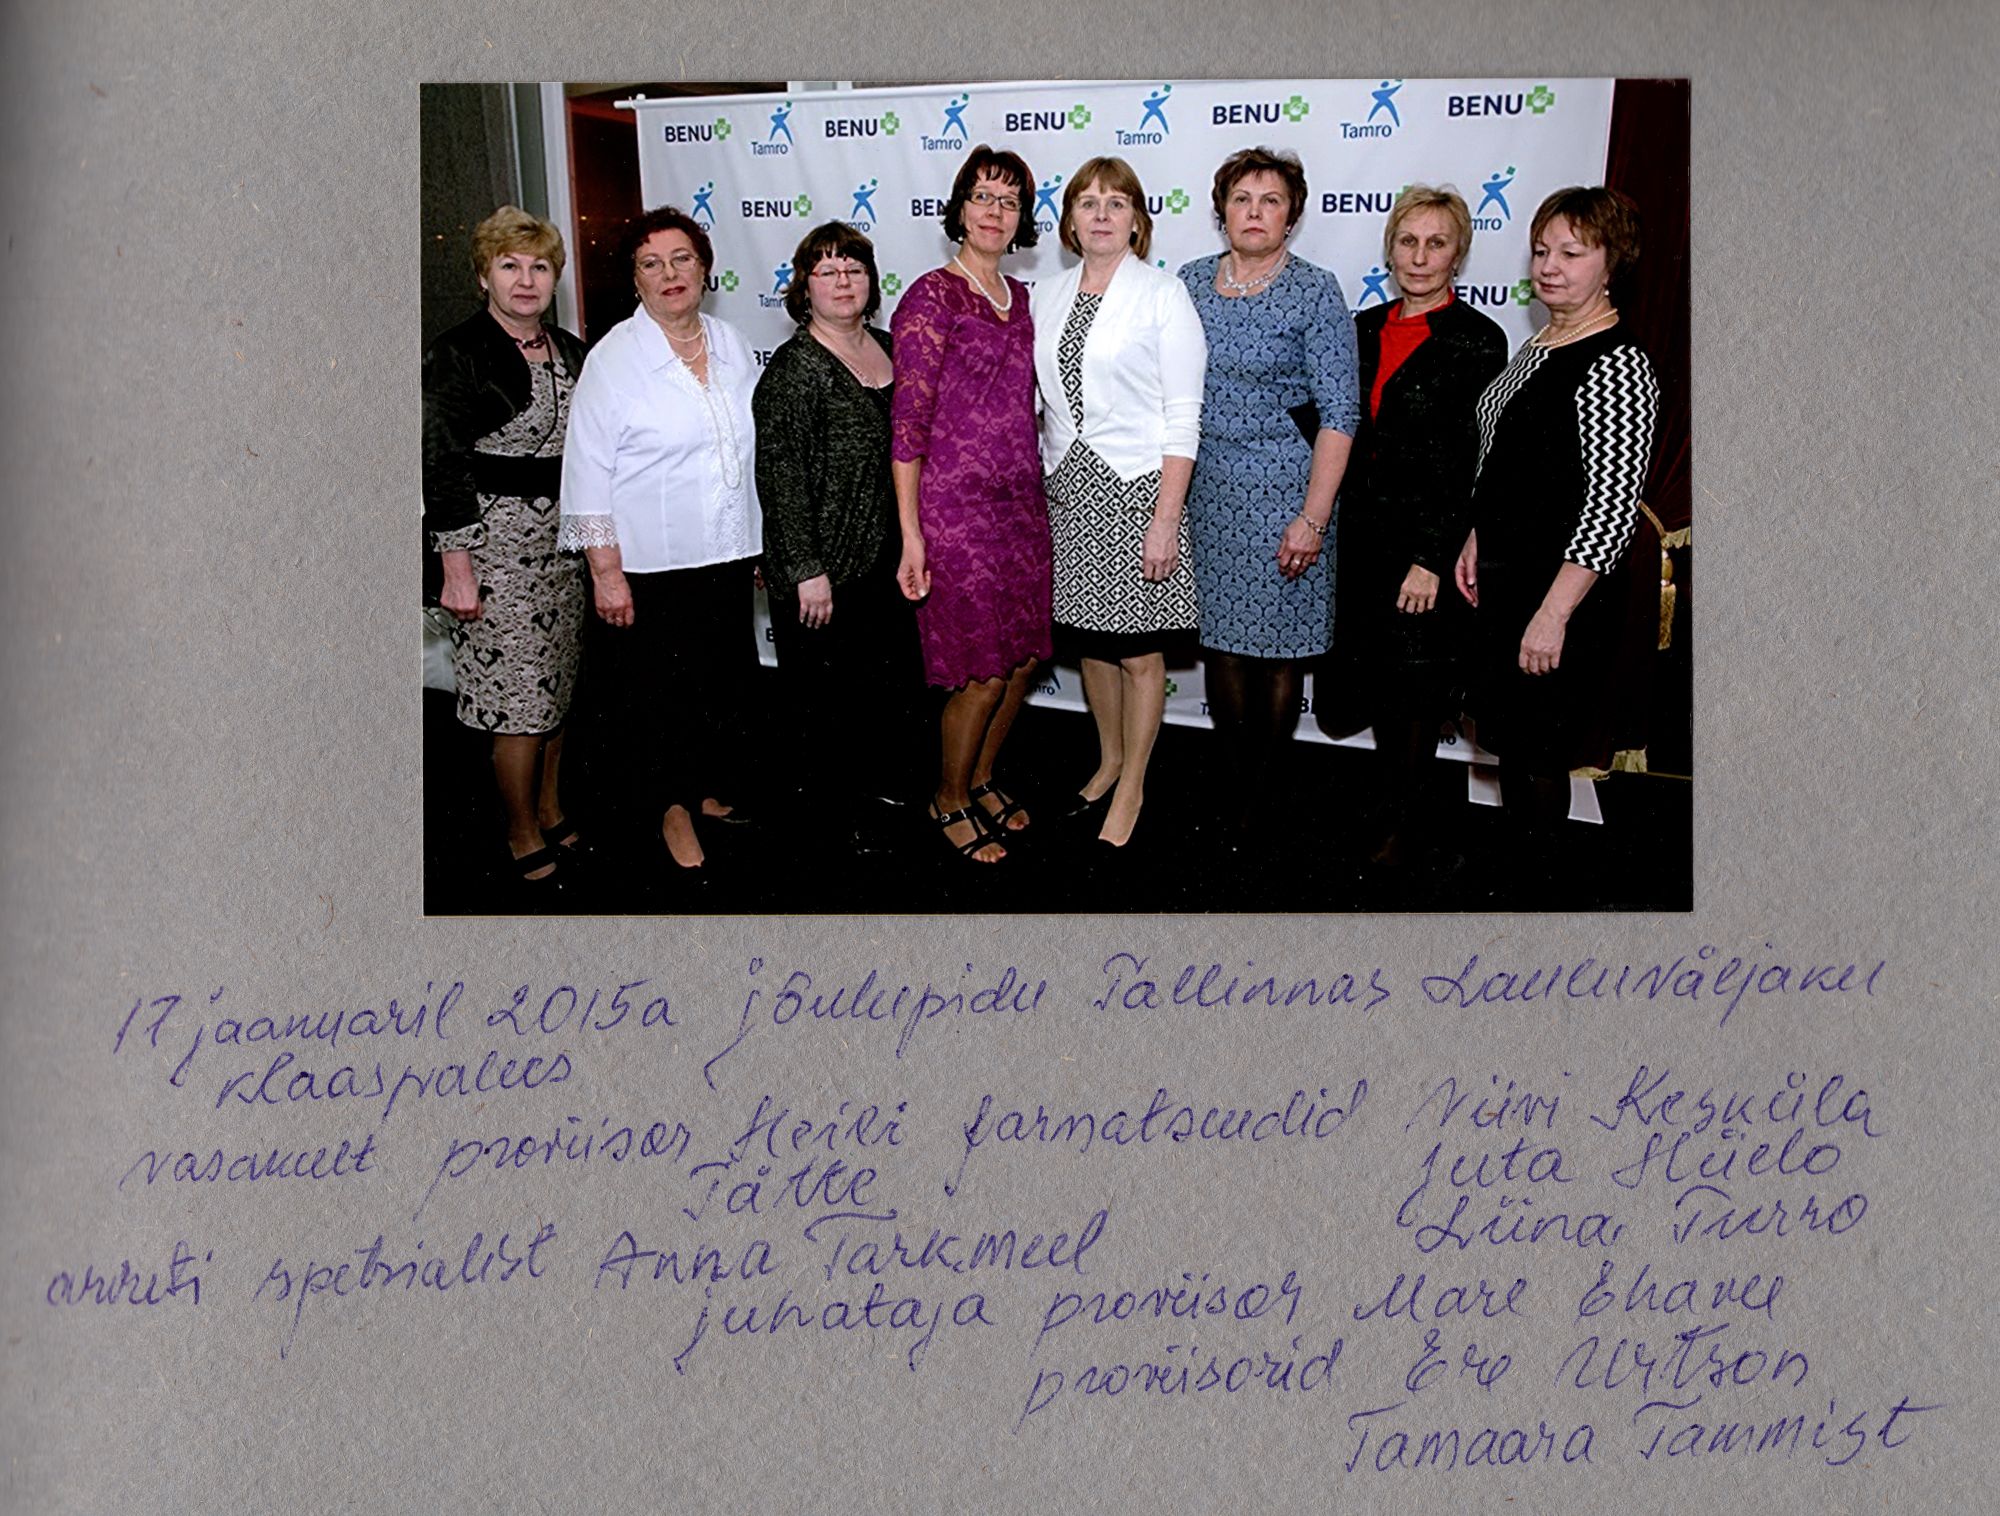 BENU Tamro BENU Tamro BENU Tamro BENU Tamro BENU
BENU BENU
Tamro
17 jaanuaril 2015a jõulupidu Tallinnas Lauluväljaku
klaaspalees
vasakult proviisor Heili farmatseudid Viivi Kesküla
Tätte Juta Hüelo
Liina Turro
arveti spetsialist Anna Tarkmeel
juhataja proviisor Mare Ehavee
proviisorid Ere Urtson
Tamaara Tammist